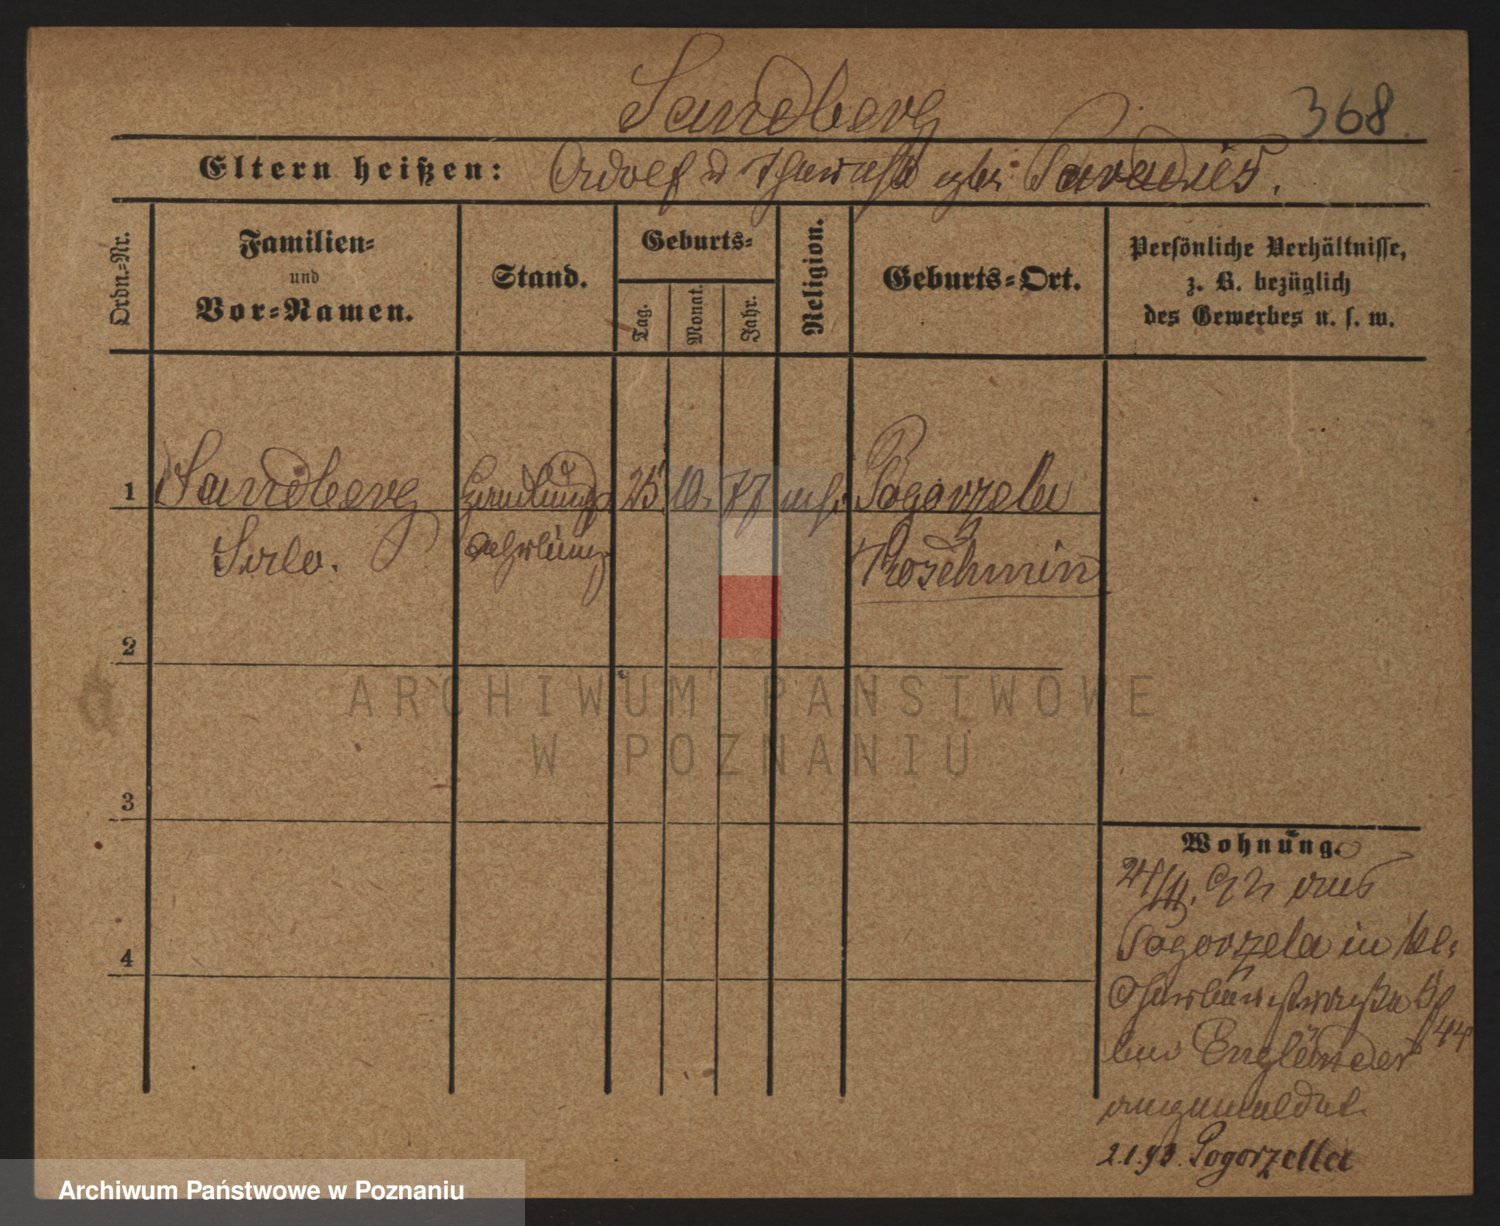 Sandberg
368
Eltern heißen: Adolf u Therese geb: Paradies.
Ordn.-Nr.
Familien-
und
Vor-Namen.
Stand.
Geburts-
Tag.
Monat.
Jahr.
Religion.
Geburts-Ort.
Persönliche Verhältnisse,
z. B. bezüglich
des Gewerbes u. s. w.
1 Sandberg Handlungs 25. 10. 77 mos. Pogorzela
Koschmin
2
3
4
Wohnung.
92 aus
Pogorzela in
5/44
bei Engländer
angemeldet.
2.1.93. Pogorzella
ARCHIWUM PAŃSTWOWE
W POZNANIU
Archiwum Państwowe w Poznaniu